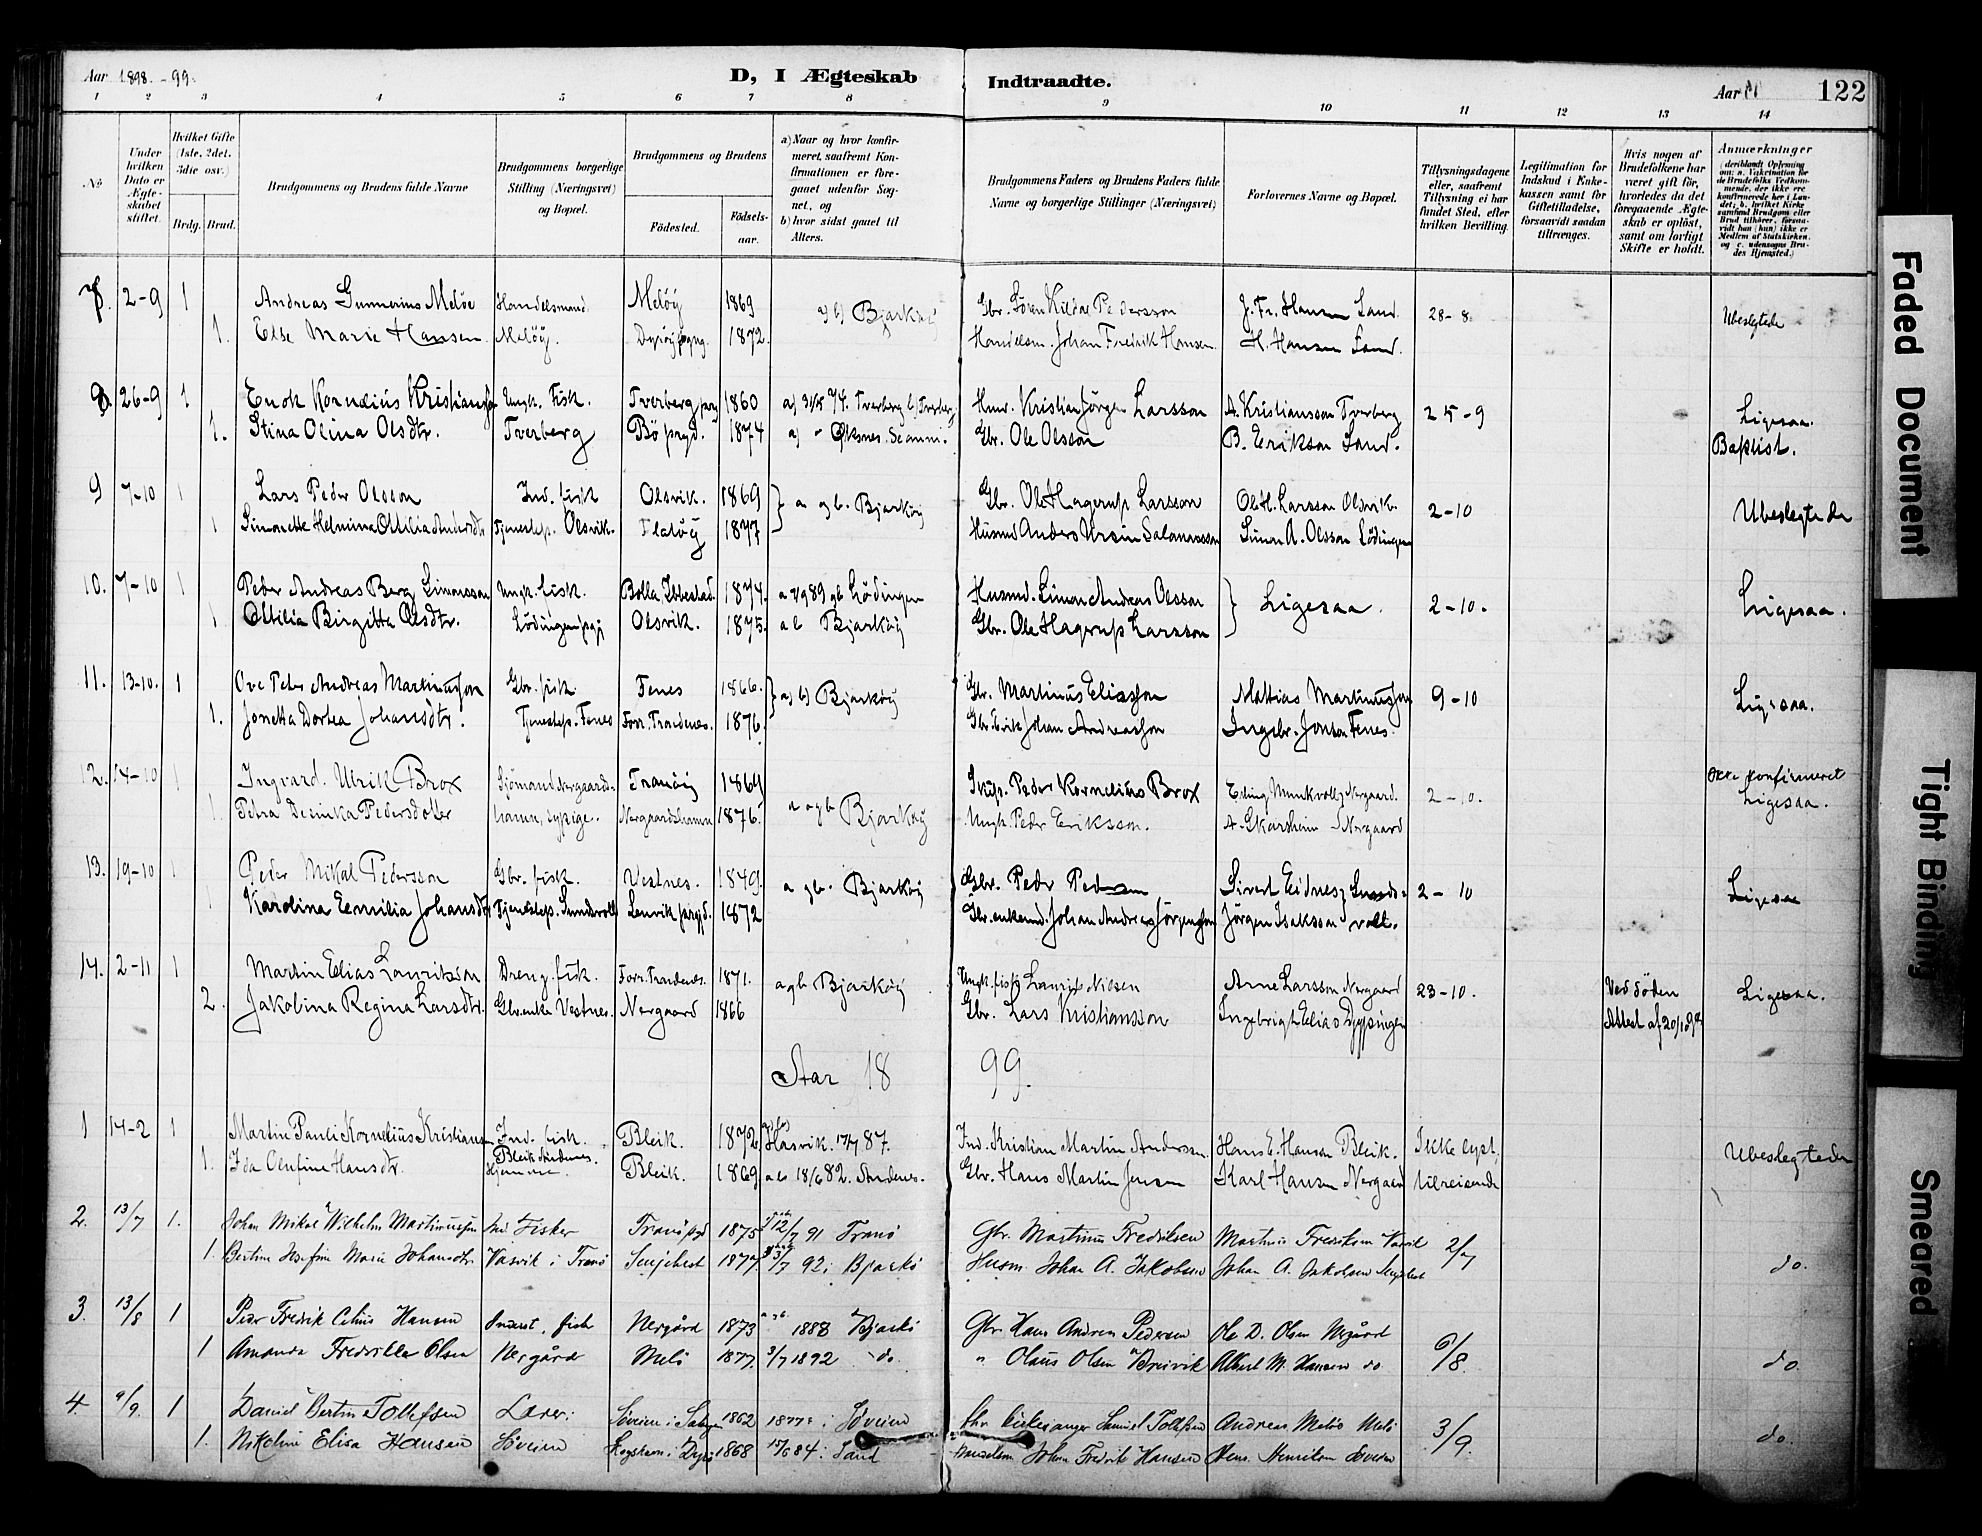 Aar 1898.-99. D, I Ægteskab Indtraadte. Aar 122
1 2 3 4 5 6 7 8 9 10 11 12 13 14
No
Under hvilken Dato er Ægteskabet stiftet.
Hvilket Gifte (1ste, 2det, 3die osv.)
Brdg. Brud.
Brudgommens og Brudens fulde Navne
Brudgommens borgerlige Stilling (Næringsvei) og Bopæl.
Brudgommens og Brudens
Fødested. Fødselsaar.
a) Naar og hvor konfirmeret, saafremt Konfirmationen er foregaaet udenfor Sognet, og
b) hvor sidst gaaet til Alters.
Brudgommens Faders og Brudens Faders fulde Navne og borgerlige Stillinger (Næringsvei)
Forlovernes Navne og Bopæl.
Tillysningsdagene eller, saafremt Tillysning ei har fundet Sted, efter hvilken Bevilling.
Legitimation for Indskud i Enkekassen samt for Giftetilladelse, forsaavidt saadan tiltrænges.
Hvis nogen af Brudefolkene har været gift før, hvorledes da det foregaaende Ægteskab er opløst, samt om lovligt Skifte er holdt.
Anmerkninger
(deriblandt Oplysning om: a. Vakcination for de Brudefolks Vedkommende, der ikke ere konfirmerede her i Landet; b. hvilket Kirkesamfund Brudgom eller Brud tilhører, forsaavidt han (hun) ikke er Medlem af Statskirken, og c. udensogns Brudes Hjemsted.)
7. 2-9 1 Andreas Gunnerius Meløe Handelsmand Meløy 1869 a) b) Bjarkøy Gbr. Sören Kildal Pedersson J. Fr. Hansen Sand 28-8 Ubeslegtede
1. Else Marie Hansen Meløy. Dyrøy 1872. Handelsm. Johan Fredrik Hansen. H. Hansen Sand.
8. 26-9 1 Enok Kornelius Kristiansson Ungk. Fisk. Tverberg 1860 74. Tverberg Kristian Jørgen Larsson A. Kristiansson Tverberg 25-9 Ligesaa.
1. Stina Olina Olsdtr. Tverberg Bø prgd. 1874 Øksnes. Gbr. Ole Olsson B. Erikson Sand. Baptist.
9 7-10 1 Lars Peder Olsson Ind. fisk Olsvik. 1869 a og b. Bjarkøy Gbr. Ole Hagerup Larsson Ole H. Larsson Olsvik. 2-10 Ubeslegtede
1 Simonette Helmina Ottilia Andersdtr Tjenestep. Olsvik. Flatøy 1877 Husmd Anders Ursin Salamonsson Simon A. Olsson Lödingen
10. 7-10 1 Peder Andreas Berg Simonsson Ungk. fisk. Bolla, Ibbestad. 1874. 89 og b Lödingen Husmd. Simon Andreas Olsson Ligesaa. 2-10. Ligesaa.
1 Ottilia Birgitta Olsdtr. Lödingen Olsvik. 1875. a b Bjarkøy Gbr. Ole Hagerup Larsson
11. 13-10. 1 Ove Peter Andreas Martinusson Gbr. fisk Fenes 1866. a) b) Bjarkøy Gbr. Martinus Eliasson Mattias Martinusson 9-10 Ligesaa.
1. Jonetta Dortea Johansdtr. Tjenestep. Fenes Forr. Trondenes. 1876. Johan Andreasson Ingebr. Jonson Fenes.
12. 14-10 1 Ingvard Ulrik Brox Sjömand Nergaards- Tranöy 1869 a og b Bjarkøy Peder Kornelius Brox Erling Munkvold, Nergaard. 2-10. Ikke konfirmeret
1. Petra Desinka Pedersdotter hamn, sypige. Nergaardshamn 1876. Ungk. Peder Eriksson. A. Skarsheim Nergaard Ligesaa.
13. 19-10 1 Peder Mikal Pedersson Gbr. fisk. Vestnes. 1849. a og b. Bjarkøy Gbr. Peder Pedersen Sivert Eidnes, Sunds- 2-10 Ligesaa
Karolina Eemilia Johansdtr Tjenestep. Sundsvoll Lenvik prgjd. 1872 Gbr. enkemd. Johan Andreas Jörgensson Jørgen Isaksson voll.
14. 2-11 1 Martin Elias Lauritsson Dreng. fisk. Forr. Trondenes. 1871. a og b Bjarkøy. Ungk. fisk. Laurits Nilsen Arne Larsson Nergaard 23-10. Ved döden Ligesaa.
2. Jakobina Regina Larsdtr. Gbr.enke Vestnes. Nergaard 1866 Gbr. Lars Kristiansson Ingebrigt Elias Dyppingen Attest af
Aar 1899.
1 14-2 1 Martin Pauli Kornelius Kristiansen Ind. fisk. Bleik. 1872 Hasvik. 17/7 87. Ind. Kristian Martin Anderssen Hans E. Hansen Bleik. Ikke lyst, Ubeslegtede
1. Ida Olufine Hansdtr. Bleik Andenes. Hjemme. Bleik. 1869. a b 18/6 82. Andenes. Gbr. Hans Martin Jensen Karl Hansen Nergaard tilreisende
2. 13/7 1. Johan Mikal Wilhelm Martinussen Ind Fisker Tranö 1875 12/7 91 Tranö Gbr. Martinus Fredriksen Martinus Fredriksen Vasvik 2/7 do.
1. Bertine Josefine Marie Johansdtr. Vasvik i Tranö Senjehest 1877. 3/7 92 i Bjarkö Husm. Johan A. Jakobsen Johan A. Jakobsen Senjehest
3. 13/8 1 Peder Fredrik Celius Hansen Inderst, fisk Nergård 1873 a og b 1888 Bjarkö Gbr Hans Andreas Pedersen Ole D. Olsen Nergård 6/8 do.
1 Amanda Fredrikke Olsen Nergård Melö 1877. 3/7 1892 do. " Olaus Olsen Breivik Albert M. Hansen do
4. 9/9. 1 Daniel Bertin Tollefsen Lærer Söveien i Salangen 1862 1877 i Söveien Gbr. kirkesanger Samuel Tollefsen Andreas Melö Melö 3/9. do.
1. Nikoline Elisa Hansen Söveien i Dyrö 1868 84. Sand Handelsm. Johan Fredrik Hansen Hans Henriksen Söveien
Faded Document
Tight Binding
Smeared